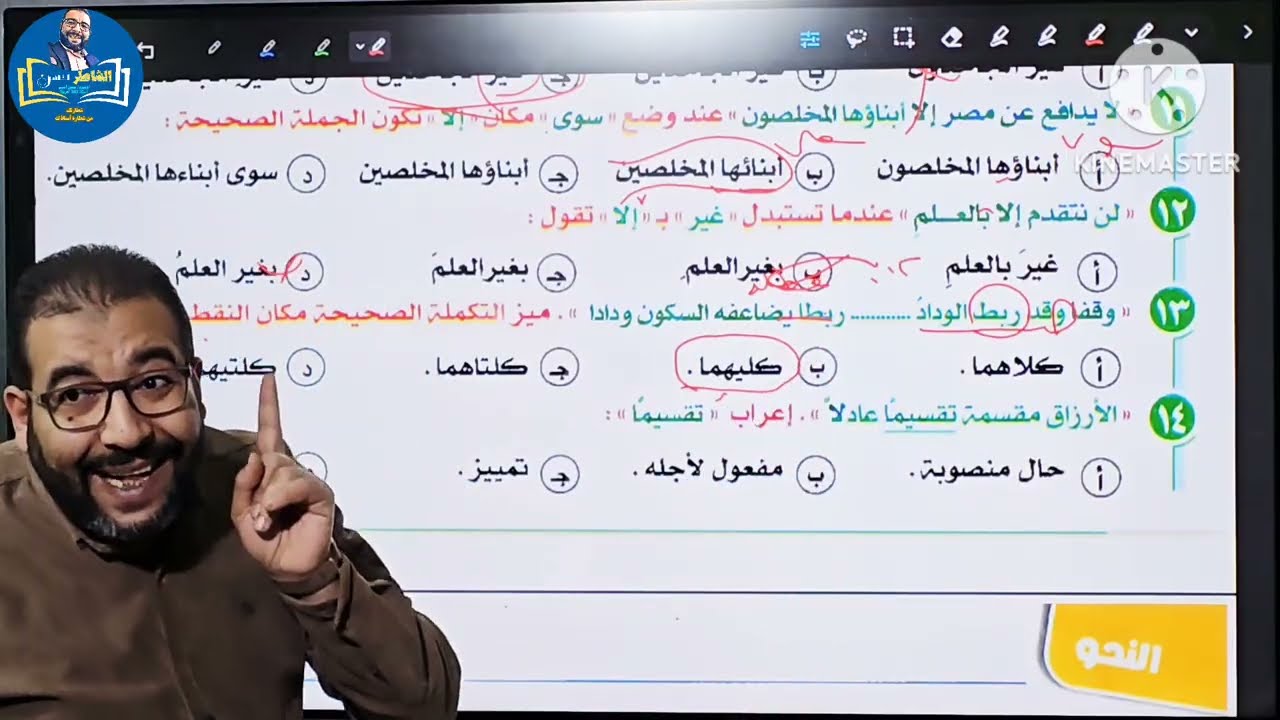 « لا يدافع عن مصر إلا أبناؤها المخلصون » عند وضع « سوى » مكان « إلا » تكون الجملة الصحيحة :
أ أبناؤها المخلصون ب أبنائها المخلصين جـ أبناؤها المخلصين د سوى أبناءها المخلصين.
١٢ « لن نتقدم إلا بالعلم » عندما تستبدل « غير » بـ « إلا » تقول :
أ غيرَ بالعلمِ ب بغيرِ العلمِ جـ بغير العلمَ د بغير العلمُ
١٣ « وقفا وقد ربط الودادُ ........... ربطا يضاعفه السكون ودادا » . ميز التكملة الصحيحة مكان النقط
أ كلاهما . ب كليهما . جـ كلتاهما . د
١٤ « الأرزاق مقسمة تقسيمًا عادلاً » . إعراب « تقسيمًا » :
أ حال منصوبة . ب مفعول لأجله . جـ تمييز .
النحو
KINEMASTER